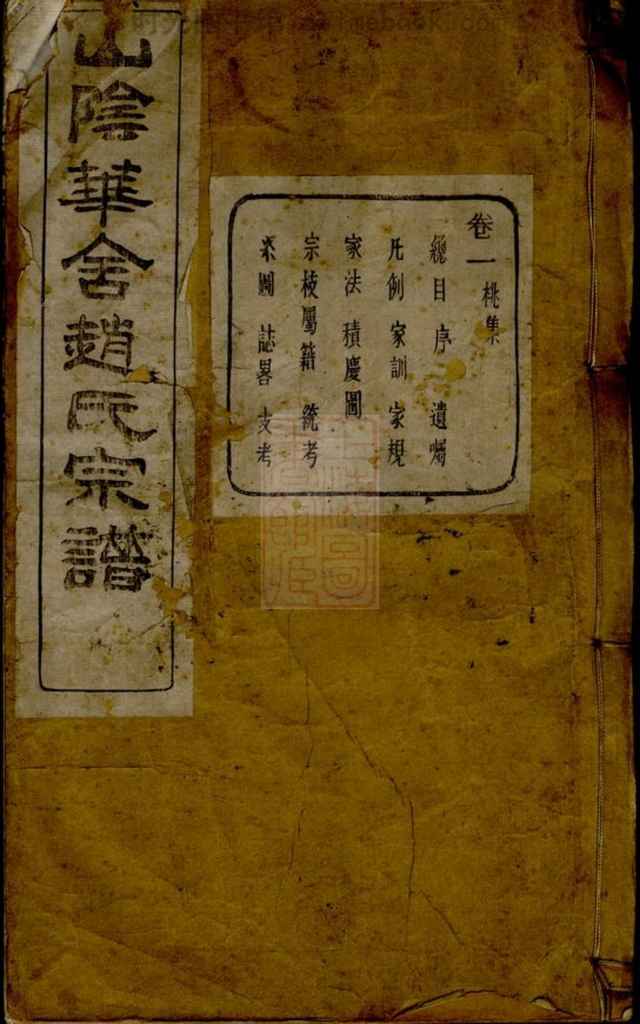 山陰華舍趙氏宗譜
卷一 桃集
總目 序 遺囑
凡例 家訓 家規
家法 積慶圖
宗枝屬籍 統考
宗圖 誌畧 支考